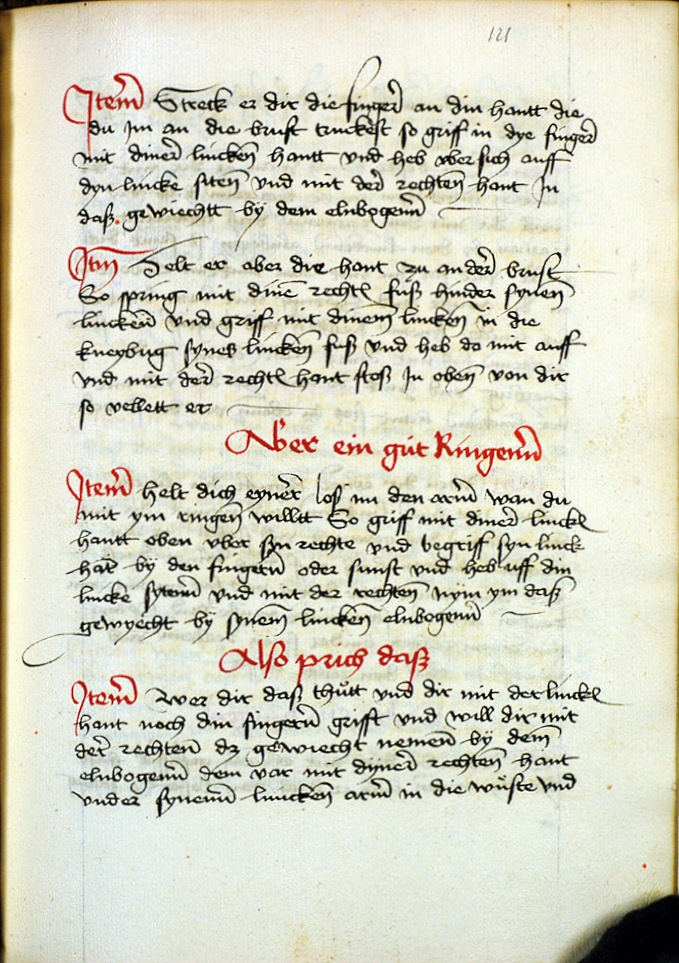 121
Item Streck er dir die finger an din hantt die
du im an die brust truckest so griff in dye finger
mit diner lincken hantt vnd heb vber sich auff
dyn lincke siten vnd mit der rechten hant in
daß gewiechtt by dem elnbogenn
Itm Helt er aber die hant zu an der brust
So spring mit dine rechtl fuß hinder synen
linckenn vnd griff mit dinem lincken in die
kneybug synes lincken fuß vnd heb do mit auff
vnd mit der rechtl hant stoß in oben von dir
so vellett er
Aber ein gůt Ringenn
Item helt dich eyner loß im den arm wan du
mit ym ringen willtt So griff mit diner linckl
hantt oben vber syn rechte vnd begriff syn linck
hat by den fingern oder sunst vnd heb uff din
lincke sytenn vnd mit der rechten nym ym daß
gewyecht by synem lincken elnbogenn
Also prich daß
Item wer dir daß thůtt vnd dir mit der linckl
hant noch din fingern grifft vnd will dir mit
der rechten dz gewiecht nemen by dem
elnbogenn dem var mit dyner rechten hant
vnder synenn linncken arm in die wůste vnd